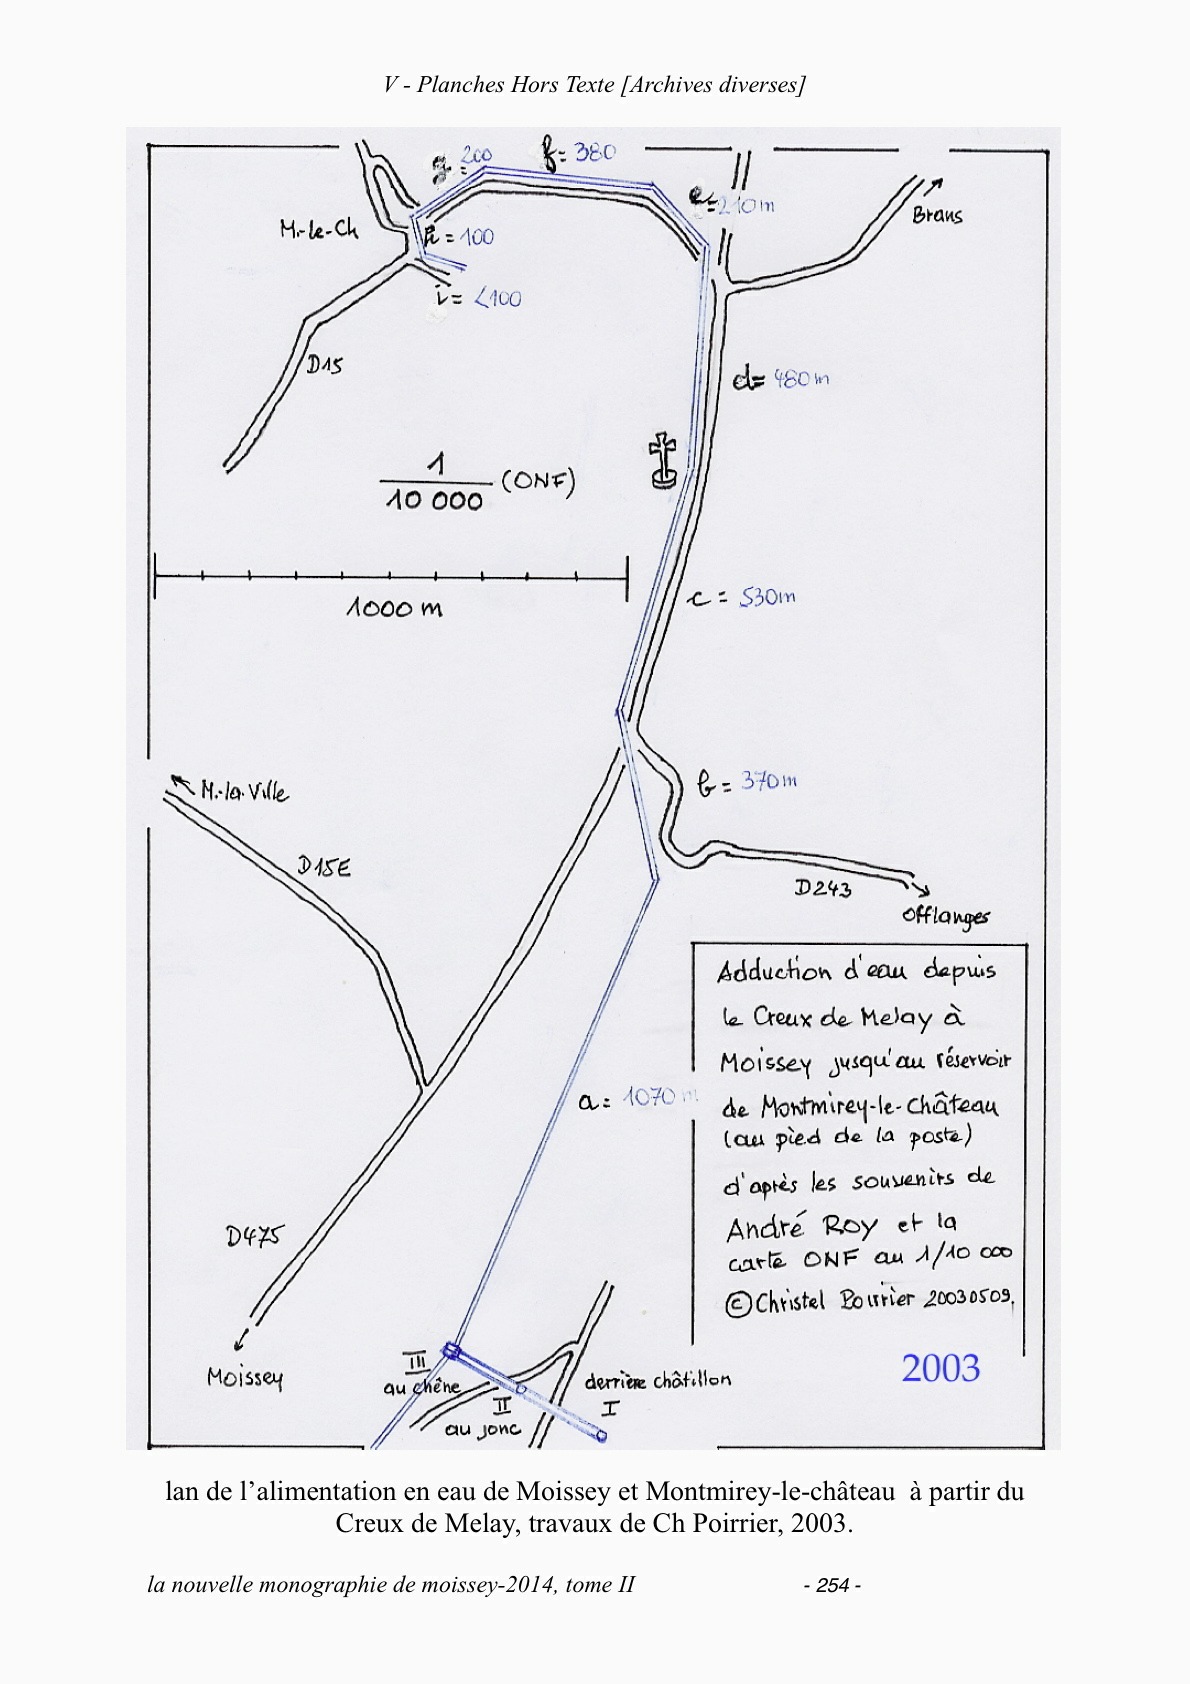 V - Planches Hors Texte [Archives diverses]
g = 200
f = 380
e = 210 m
Brans
M.-le-Ch
h = 100
i = <100
D15
d = 480 m
1
10 000
(ONF)
1000 m
c = 530 m
M.-la-Ville
b = 370 m
D15E
D243
Offlanges
Adduction d'eau depuis
le Creux de Melay à
Moissey jusqu'au réservoir
de Montmirey-le-Château
(au pied de la poste)
d'après les souvenirs de
André Roy et la
carte ONF au 1/10 000
© Christel Poirrier 20030509.
a = 1070 m
D475
Moissey
III
au chêne
II
au jonc
derrière châtillon
I
2003
lan de l’alimentation en eau de Moissey et Montmirey-le-château à partir du
Creux de Melay, travaux de Ch Poirrier, 2003.
la nouvelle monographie de moissey-2014, tome II
- 254 -